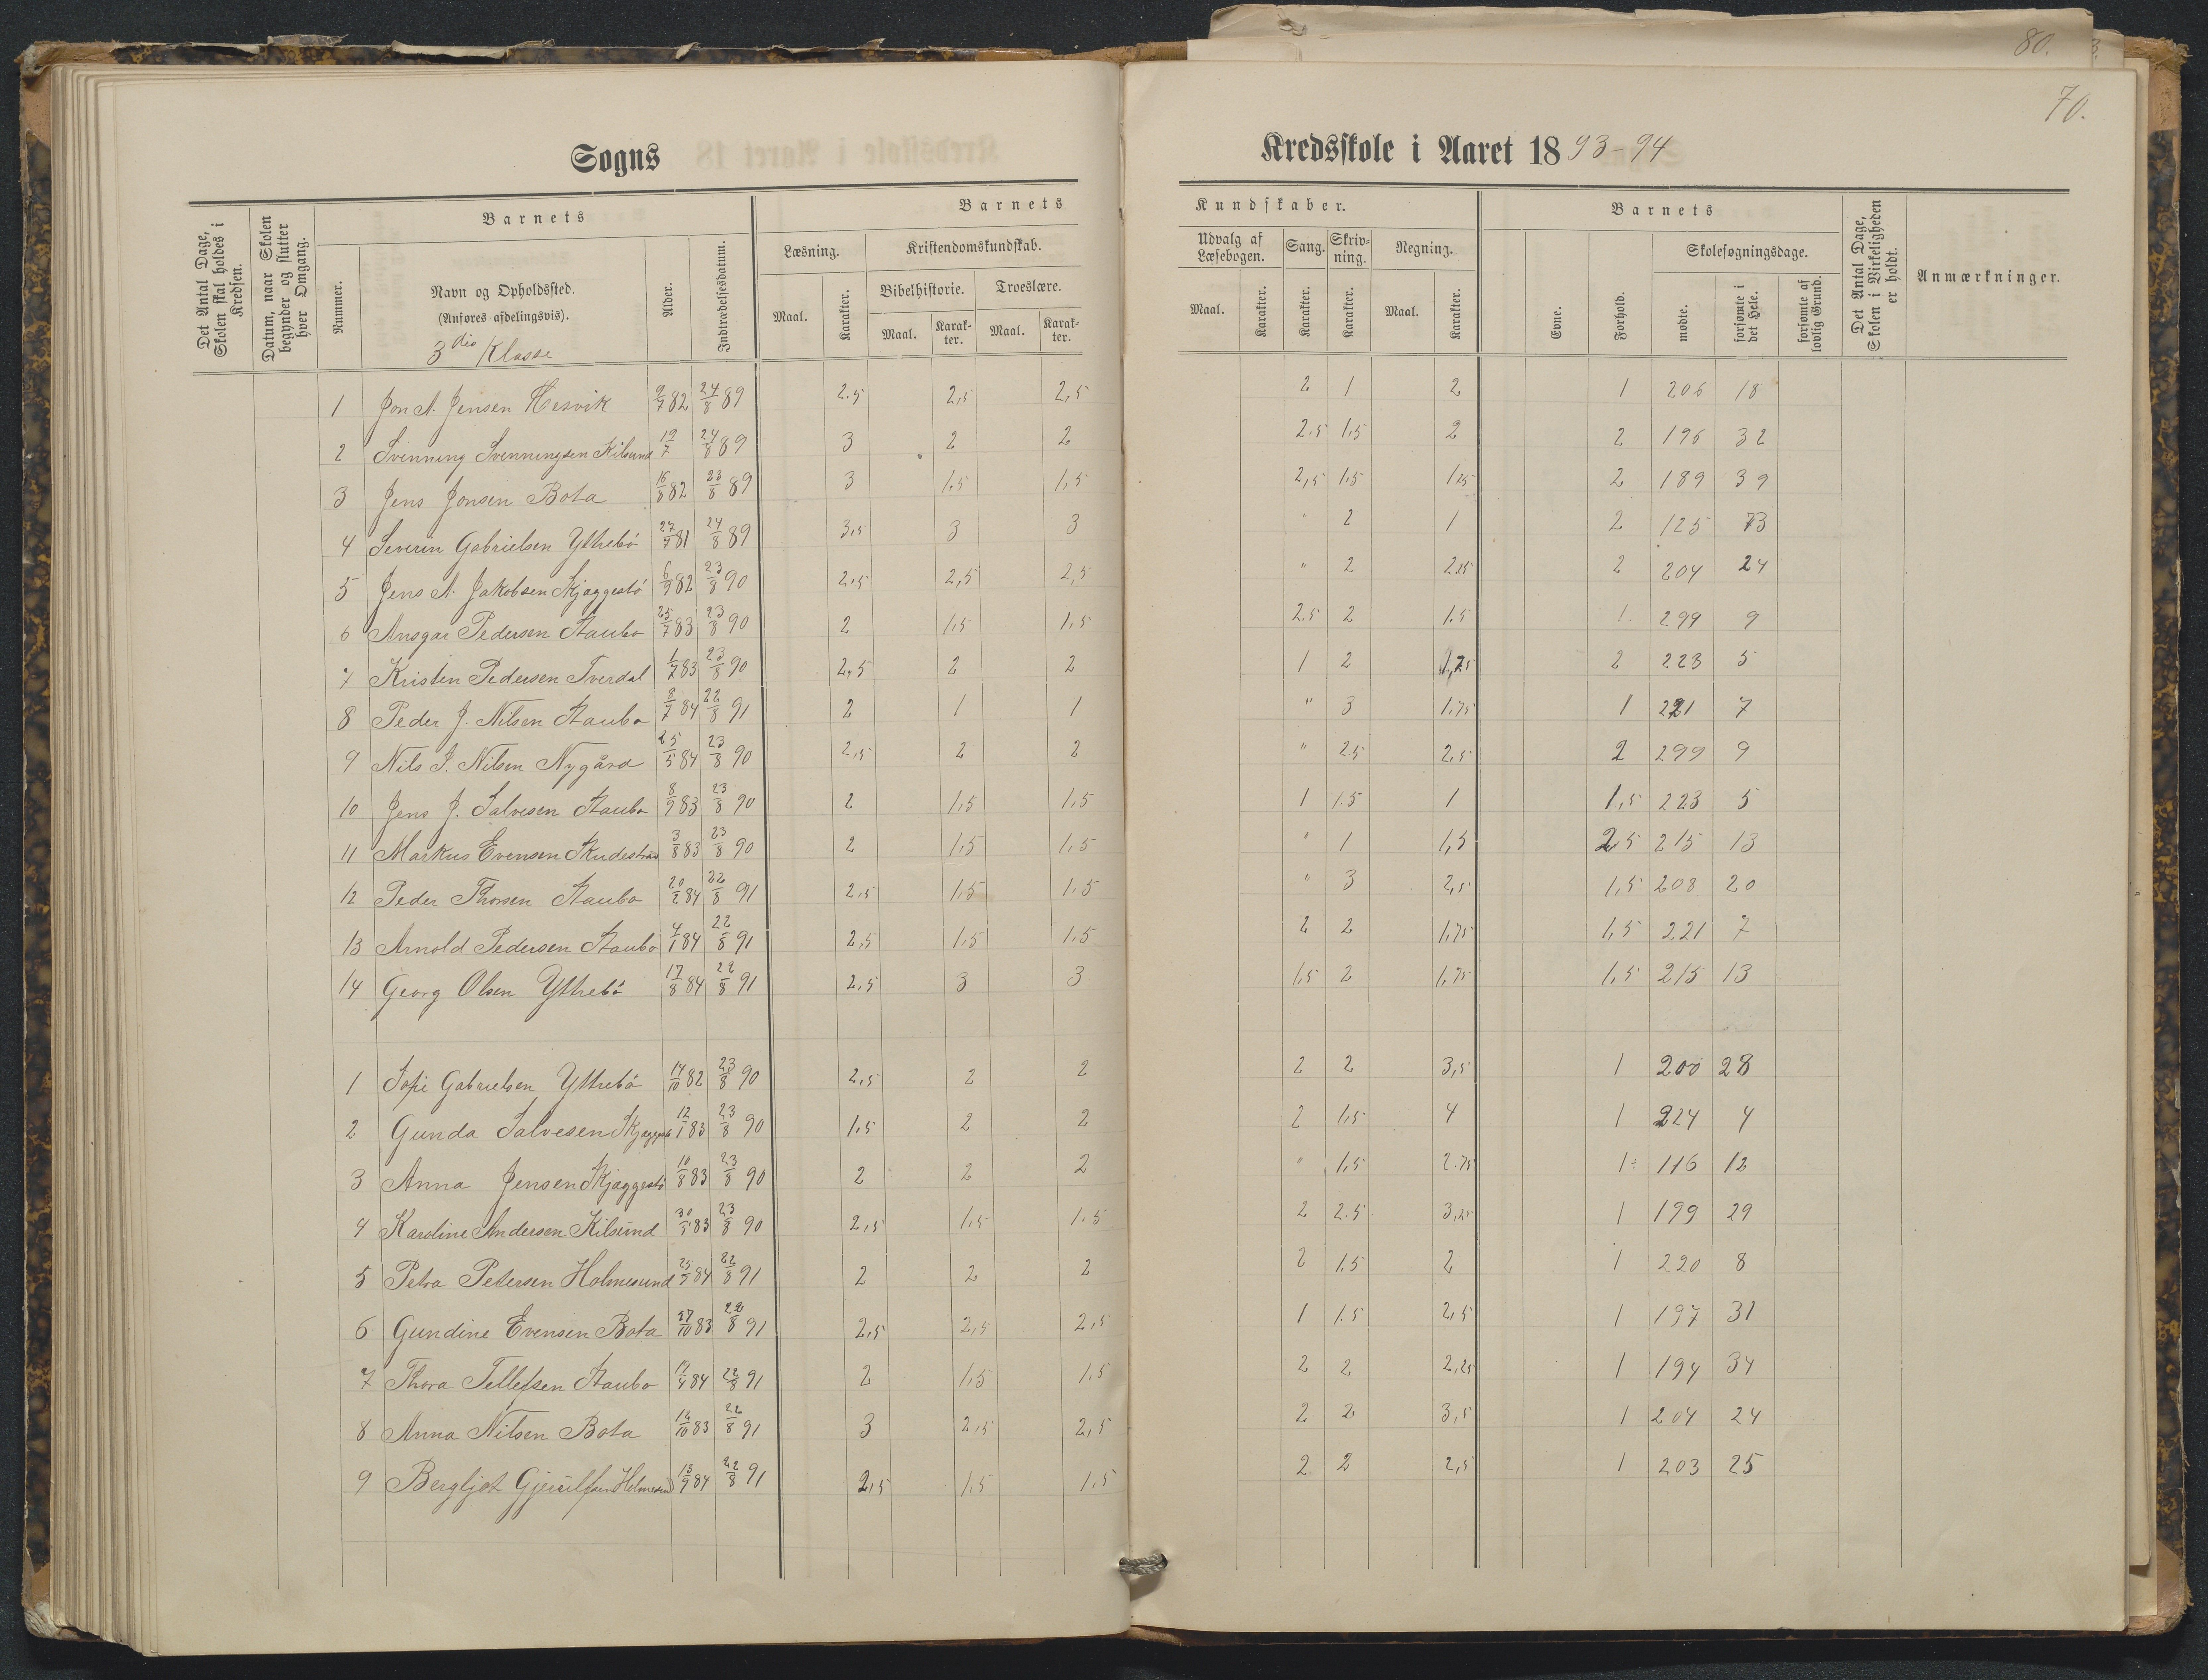 80.
70.
Sogns
Kredsskole i Aaret 1893-94
Det Antal Dage, Skolen skal holdes i Kredsen.
Datum, naar Skolen begynder og slutter hver Omgang.
Barnets
Nummer.
Navn og Opholdssted.
(Anføres afdelingsvis).
3die Klasse
Alder.
Indtrædelsesdatum.
Barnets
Læsning.
Maal.
Karakter.
Kristendomskundskab.
Bibelhistorie.
Maal.
Karakter.
Troeslære.
Maal.
Karakter.
Kundskaber.
Udvalg af Læsebogen.
Maal.
Karakter.
Sang.
Karakter.
Skrivning.
Karakter.
Regning.
Maal.
Karakter.
Barnets
Evne.
Forhold.
Skolesøgningsdage.
mødte.
forsømte i det Hele.
forsømte af lovlig Grund.
Det Antal Dage, Skolen i Virkeligheden er holdt.
Anmærkninger.
1 Jon A. Jensen Hesvik 9/7 82 24/8 89 2.5 2,5 2,5 2 1 2 1 206 18
2 Svenning Svenningsen Kilsund 19/7 24/8 89 3 2 2 2.5 1,5 2 2 196 32
3 Jens Jonsen Bota 16/8 82 23/8 89 3 1,5 1,5 2,5 1,5 1,25 2 189 39
4 Severin Gabrielsen Yttrebö 27/7 81 24/8 89 3,5 3 3 " 2 1 2 125 73
5 Jens A. Jakobsen Skjaggestö 6/9 82 23/8 90 2,5 2,5 2,5 " 2 2,25 2 204 24
6 Ansgar Pedersen Staubo 25/7 83 23/8 90 2 1,5 1,5 2.5 2 1.5 1. 299 9
7 Kristen Pedersen Tverdal 1/7 83 23/8 90 2,5 2 2 1 2 1,25 2 223 5
8 Peder J. Nilsen Staubo 8/7 84 22/8 91 2 1 1 " 3 1.75 1 221 7
9 Nils S. Nilsen Nygård 25/5 84 23/8 90 2,5 2 2 " 2.5 2,5 2 299 9
10 Jens J. Salvesen Staubo 8/9 83 23/8 90 2 1,5 1,5 1 1.5 1 1,5 223 5
11 Markus Evensen 3/8 83 23/8 90 2 1,5 1,5 " 1 1,5 2,5 215 13
12 Peder Thorsen Staubo 20/2 84 22/8 91 2,5 1,5 1.5 " 3 2,5 1,5 208 20
13 Arnold Pedersen Staubo 4/1 84 22/8 91 2,5 1,5 1.5 2 2 1,75 1,5 221 7
14 Georg Olsen Yttrebö 17/8 84 22/8 91 2,5 3 3 1,5 2 1,75 1,5 215 13
1 Sofie Gabrielsen Yttrebö 14/10 82 23/8 90 2,5 2 2 2 2 3,5 1 200 28
2 Gunda Salvesen Skjaggestö 12/1 83 23/8 90 1,5 2 2 2 1,5 4 1 224 4
3 Anna Jensen Skjaggestö 10/8 83 23/8 90 2 2 2 " 1,5 2.75 1 116 12
4 Karoline Andersen Kilsund 30/5 83 23/8 90 2,5 1,5 1.5 2 2.5 3,25 1 199 29
5 Petra Petersen Holmesund 84 22/8 91 2 2 2 2 1.5 2 1 220 8
6 Gundine Evensen Bota 27/10 83 22/8 91 2,5 2,5 2,5 1 1.5 2,5 1 197 31
7 Thora Tellefsen Staubo 84 22/8 91 2 1,5 1,5 2 2 2,25 1 194 34
8 Anna Nilsen Bota 83 22/8 91 3 2,5 2,5 2 2 3,5 1 204 24
9 Bergljot Gjeruldsen Holmesund 13/9 84 22/8 91 2,5 1,5 1,5 2 2 2,5 1 203 25